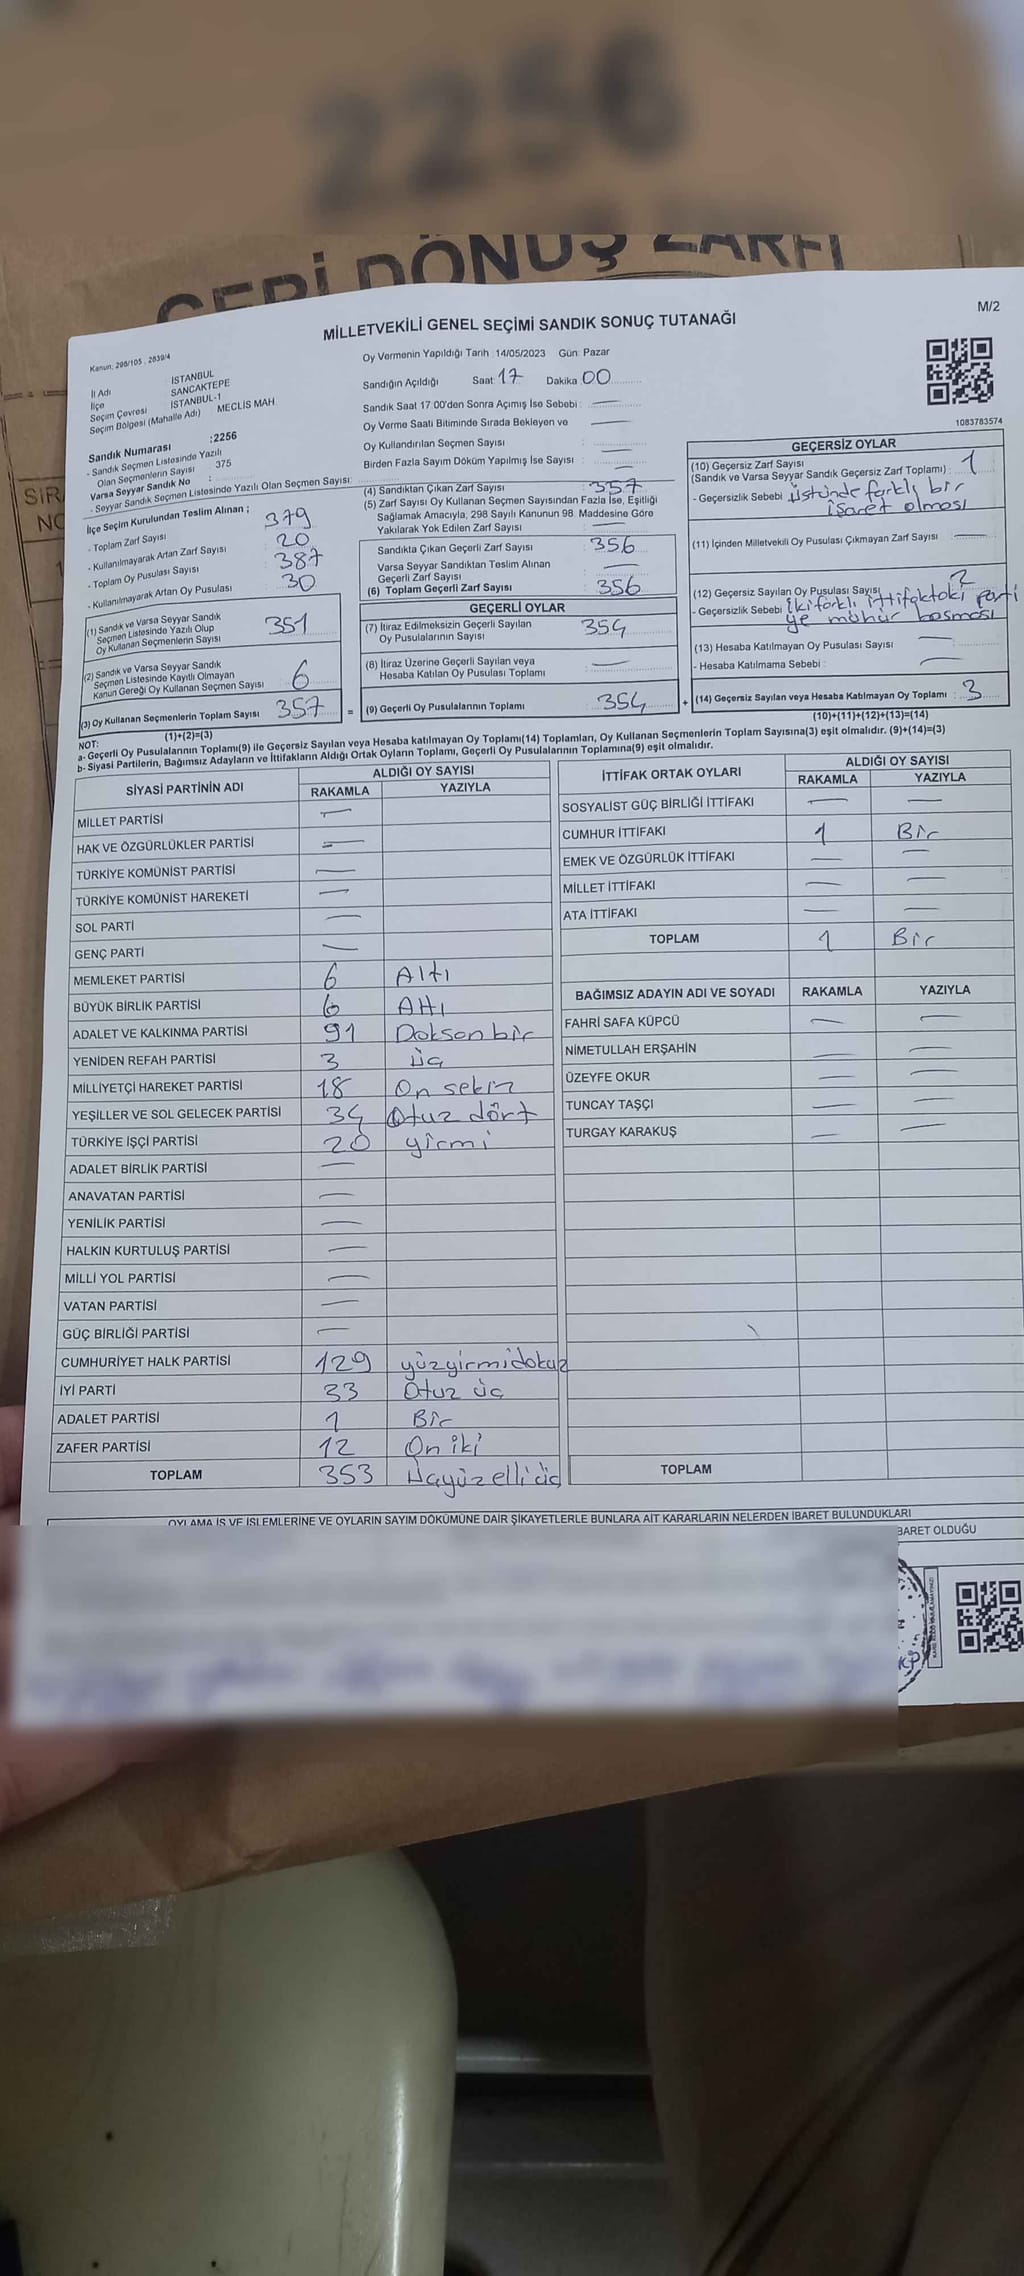 2256
GERİ DÖNÜŞ ZARFI
SIRA
NO
M/2
MİLLETVEKİLİ GENEL SEÇİMİ SANDIK SONUÇ TUTANAĞI
Kanun: 298/105 , 2839/4
Oy Vermenin Yapıldığı Tarih :14/05/2023 Gün: Pazar
İl Adı : İSTANBUL
İlçe SANCAKTEPE
Seçim Çevresi İSTANBUL-1
Seçim Bölgesi (Mahalle Adı) MECLİS MAH.
Sandık Numarası :2256
- Sandık Seçmen Listesinde Yazılı
Olan Seçmenlerin Sayısı 375
Varsa Seyyar Sandık No :
- Seyyar Sandık Seçmen Listesinde Yazılı Olan Seçmen Sayısı:
İlçe Seçim Kurulundan Teslim Alınan ;
- Toplam Zarf Sayısı 379
- Kullanılmayarak Artan Zarf Sayısı 20
- Toplam Oy Pusulası Sayısı 387
- Kullanılmayarak Artan Oy Pusulası 30
(1) Sandık ve Varsa Seyyar Sandık
Seçmen Listesinde Yazılı Olup
Oy Kullanan Seçmenlerin Sayısı 351
(2) Sandık ve Varsa Seyyar Sandık
Seçmen Listesinde Kayıtlı Olmayan
Kanun Gereği Oy Kullanan Seçmen Sayısı 6
(3) Oy Kullanan Seçmenlerin Toplam Sayısı 357 =
(1)+(2)=(3)
Sandığın Açıldığı Saat 17 Dakika 00
Sandık Saat 17:00'den Sonra Açımış İse Sebebi : —
Oy Verme Saati Bitiminde Sırada Bekleyen ve —
Oy Kullandırılan Seçmen Sayısı
Birden Fazla Sayım Döküm Yapılmış İse Sayısı : —
(4) Sandıktan Çıkan Zarf Sayısı : 357
(5) Zarf Sayısı Oy Kullanan Seçmen Sayısından Fazla İse, Eşitliği
Sağlamak Amacıyla, 298 Sayılı Kanunun 98. Maddesine Göre
Yakılarak Yok Edilen Zarf Sayısı : —
Sandıkta Çıkan Geçerli Zarf Sayısı : 356
Varsa Seyyar Sandıktan Teslim Alınan
Geçerli Zarf Sayısı —
(6) Toplam Geçerli Zarf Sayısı : 356
GEÇERLİ OYLAR
(7) İtiraz Edilmeksizin Geçerli Sayılan
Oy Pusulalarının Sayısı : 354
(8) İtiraz Üzerine Geçerli Sayılan veya
Hesaba Katılan Oy Pusulası Toplamı : —
(9) Geçerli Oy Pusulalarının Toplamı : 354 +
1083783574
GEÇERSİZ OYLAR
(10) Geçersiz Zarf Sayısı
(Sandık ve Varsa Seyyar Sandık Geçersiz Zarf Toplamı) : 1
- Geçersizlik Sebebi : Üstünde farklı bir
işaret olması
(11) İçinden Milletvekili Oy Pusulası Çıkmayan Zarf Sayısı : —
(12) Geçersiz Sayılan Oy Pusulası Sayısı 2
- Geçersizlik Sebebi İki farklı ittifaktaki parti
ye mühür basması
(13) Hesaba Katılmayan Oy Pusulası Sayısı : —
- Hesaba Katılmama Sebebi : —
(14) Geçersiz Sayılan veya Hesaba Katılmayan Oy Toplamı : 3
(10)+(11)+(12)+(13)=(14)
NOT:
a- Geçerli Oy Pusulalarının Toplamı(9) ile Geçersiz Sayılan veya Hesaba katılmayan Oy Toplamı(14) Toplamları, Oy Kullanan Seçmenlerin Toplam Sayısına(3) eşit olmalıdır. (9)+(14)=(3)
b- Siyasi Partilerin, Bağımsız Adayların ve İttifakların Aldığı Ortak Oyların Toplamı, Geçerli Oy Pusulalarının Toplamına(9) eşit olmalıdır.
SİYASİ PARTİNİN ADI ALDIĞI OY SAYISI
RAKAMLA YAZIYLA
MİLLET PARTİSİ —
HAK VE ÖZGÜRLÜKLER PARTİSİ —
TÜRKİYE KOMÜNİST PARTİSİ —
TÜRKİYE KOMÜNİST HAREKETİ —
SOL PARTİ —
GENÇ PARTİ —
MEMLEKET PARTİSİ 6 Altı
BÜYÜK BİRLİK PARTİSİ 6 Altı
ADALET VE KALKINMA PARTİSİ 91 Doksan bir
YENİDEN REFAH PARTİSİ 3 üç
MİLLİYETÇİ HAREKET PARTİSİ 18 On sekiz
YEŞİLLER VE SOL GELECEK PARTİSİ 34 Otuz dört
TÜRKİYE İŞÇİ PARTİSİ 20 yirmi
ADALET BİRLİK PARTİSİ —
ANAVATAN PARTİSİ —
YENİLİK PARTİSİ —
HALKIN KURTULUŞ PARTİSİ —
MİLLİ YOL PARTİSİ —
VATAN PARTİSİ —
GÜÇ BİRLİĞİ PARTİSİ —
CUMHURİYET HALK PARTİSİ 129 yüzyirmidokuz
İYİ PARTİ 33 Otuz üç
ADALET PARTİSİ 1 Bir
ZAFER PARTİSİ 12 On iki
TOPLAM 353 üçyüzelliüç
İTTİFAK ORTAK OYLARI ALDIĞI OY SAYISI
RAKAMLA YAZIYLA
SOSYALİST GÜÇ BİRLİĞİ İTTİFAKI — —
CUMHUR İTTİFAKI 1 Bir
EMEK VE ÖZGÜRLÜK İTTİFAKI — —
MİLLET İTTİFAKI — —
ATA İTTİFAKI — —
TOPLAM 1 Bir
BAĞIMSIZ ADAYIN ADI VE SOYADI RAKAMLA YAZIYLA
FAHRİ SAFA KÜPCÜ — —
NİMETULLAH ERŞAHİN — —
ÜZEYFE OKUR — —
TUNCAY TAŞÇI — —
TURGAY KARAKUŞ — —
TOPLAM
OYLAMA İŞ VE İŞLEMLERİNE VE OYLARIN SAYIM DÖKÜMÜNE DAİR ŞİKAYETLERLE BUNLARA AİT KARARLARIN NELERDEN İBARET BULUNDUKLARI
BARET OLDUĞU